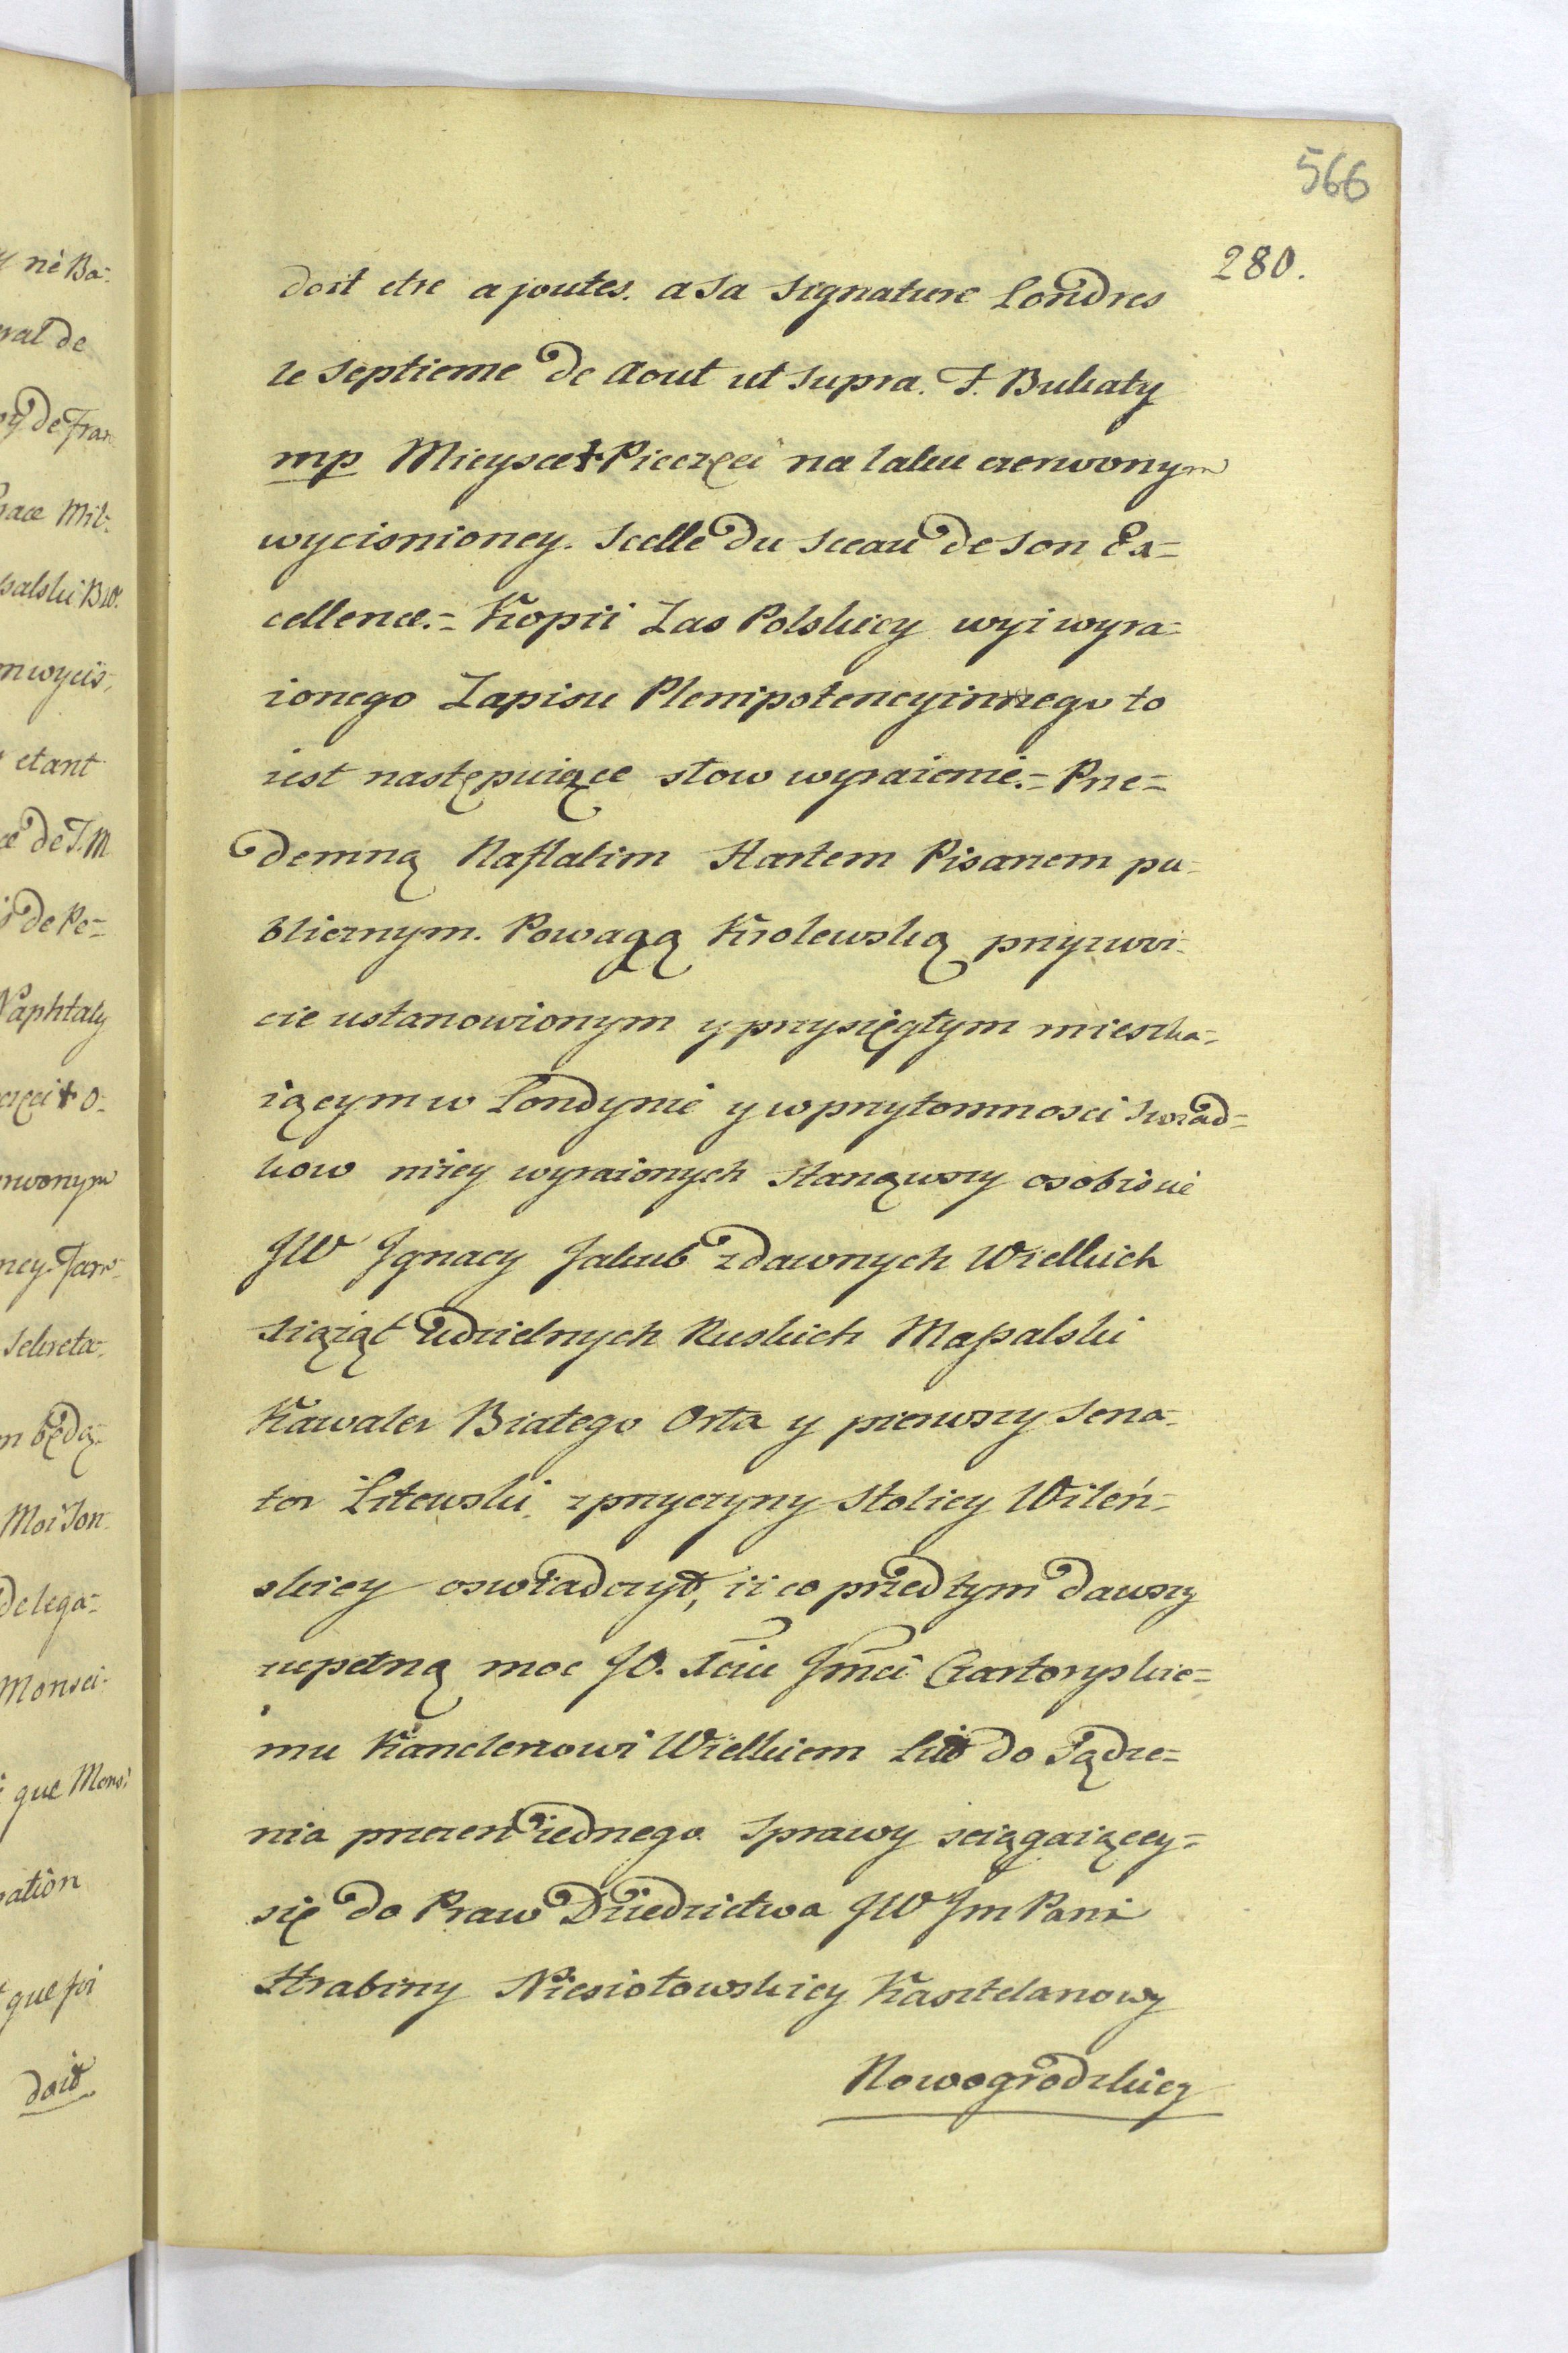 566
280.
doit etre ajoutes. a sa signature Londres
le septieme de Aout ut supra. F. Bukaty
mp Mieysce + Pieczęci na laku czerwonym
wycisnioney. Scelle du sceau de son Ex=
cellence.= Kopii Zas Polskiey wyż wyra=
żonego Zapisu Plenipotencyinnego to
iest następuiące słow wyrażenie.= Prze=
demną Naftalim Hartem Pisarzem pu=
blicznym. Powagą Krolewską przyzwoi=
cie ustanowionym y przysięgłym mieszka=
iącym w Londynie y w przytomnosci swiad=
kow niżey wyrażonych stanąwszy osobiscie
JW Jgnacy Jakub z dawnych Wielkich
Xiążąt Udzielnych Ruskich Massalski
Kawaler Białego Orła y pierwszy Sena=
tor Litewski, z przyczyny Stolicy Wileń=
skiey oswiadczył, iż co przed tym dawszy
zupełną moc JO. Xciu Jmci Czartoryskie=
mu Kanclerzowi Wielkiem Litt do Sądze=
nia przezen iednego Sprawy sciągaiącey=
się do Praw Dziedzictwa JW Jm Pani
Hrabiny Niesiołowskiey Kasztelanowy
Nowogrodzkiey
y nè Ba=
ral de
py de Fran
nace Mil=
salski BW.
m wycis,
etant
ce de J. M
de Pe=
Naphtaly
częci + O=
rwonym
ney. Jaro=
Sekreta=
m będą=
Moi son
Delega=
Monsei=
que Monsi
ration
que foi
doit